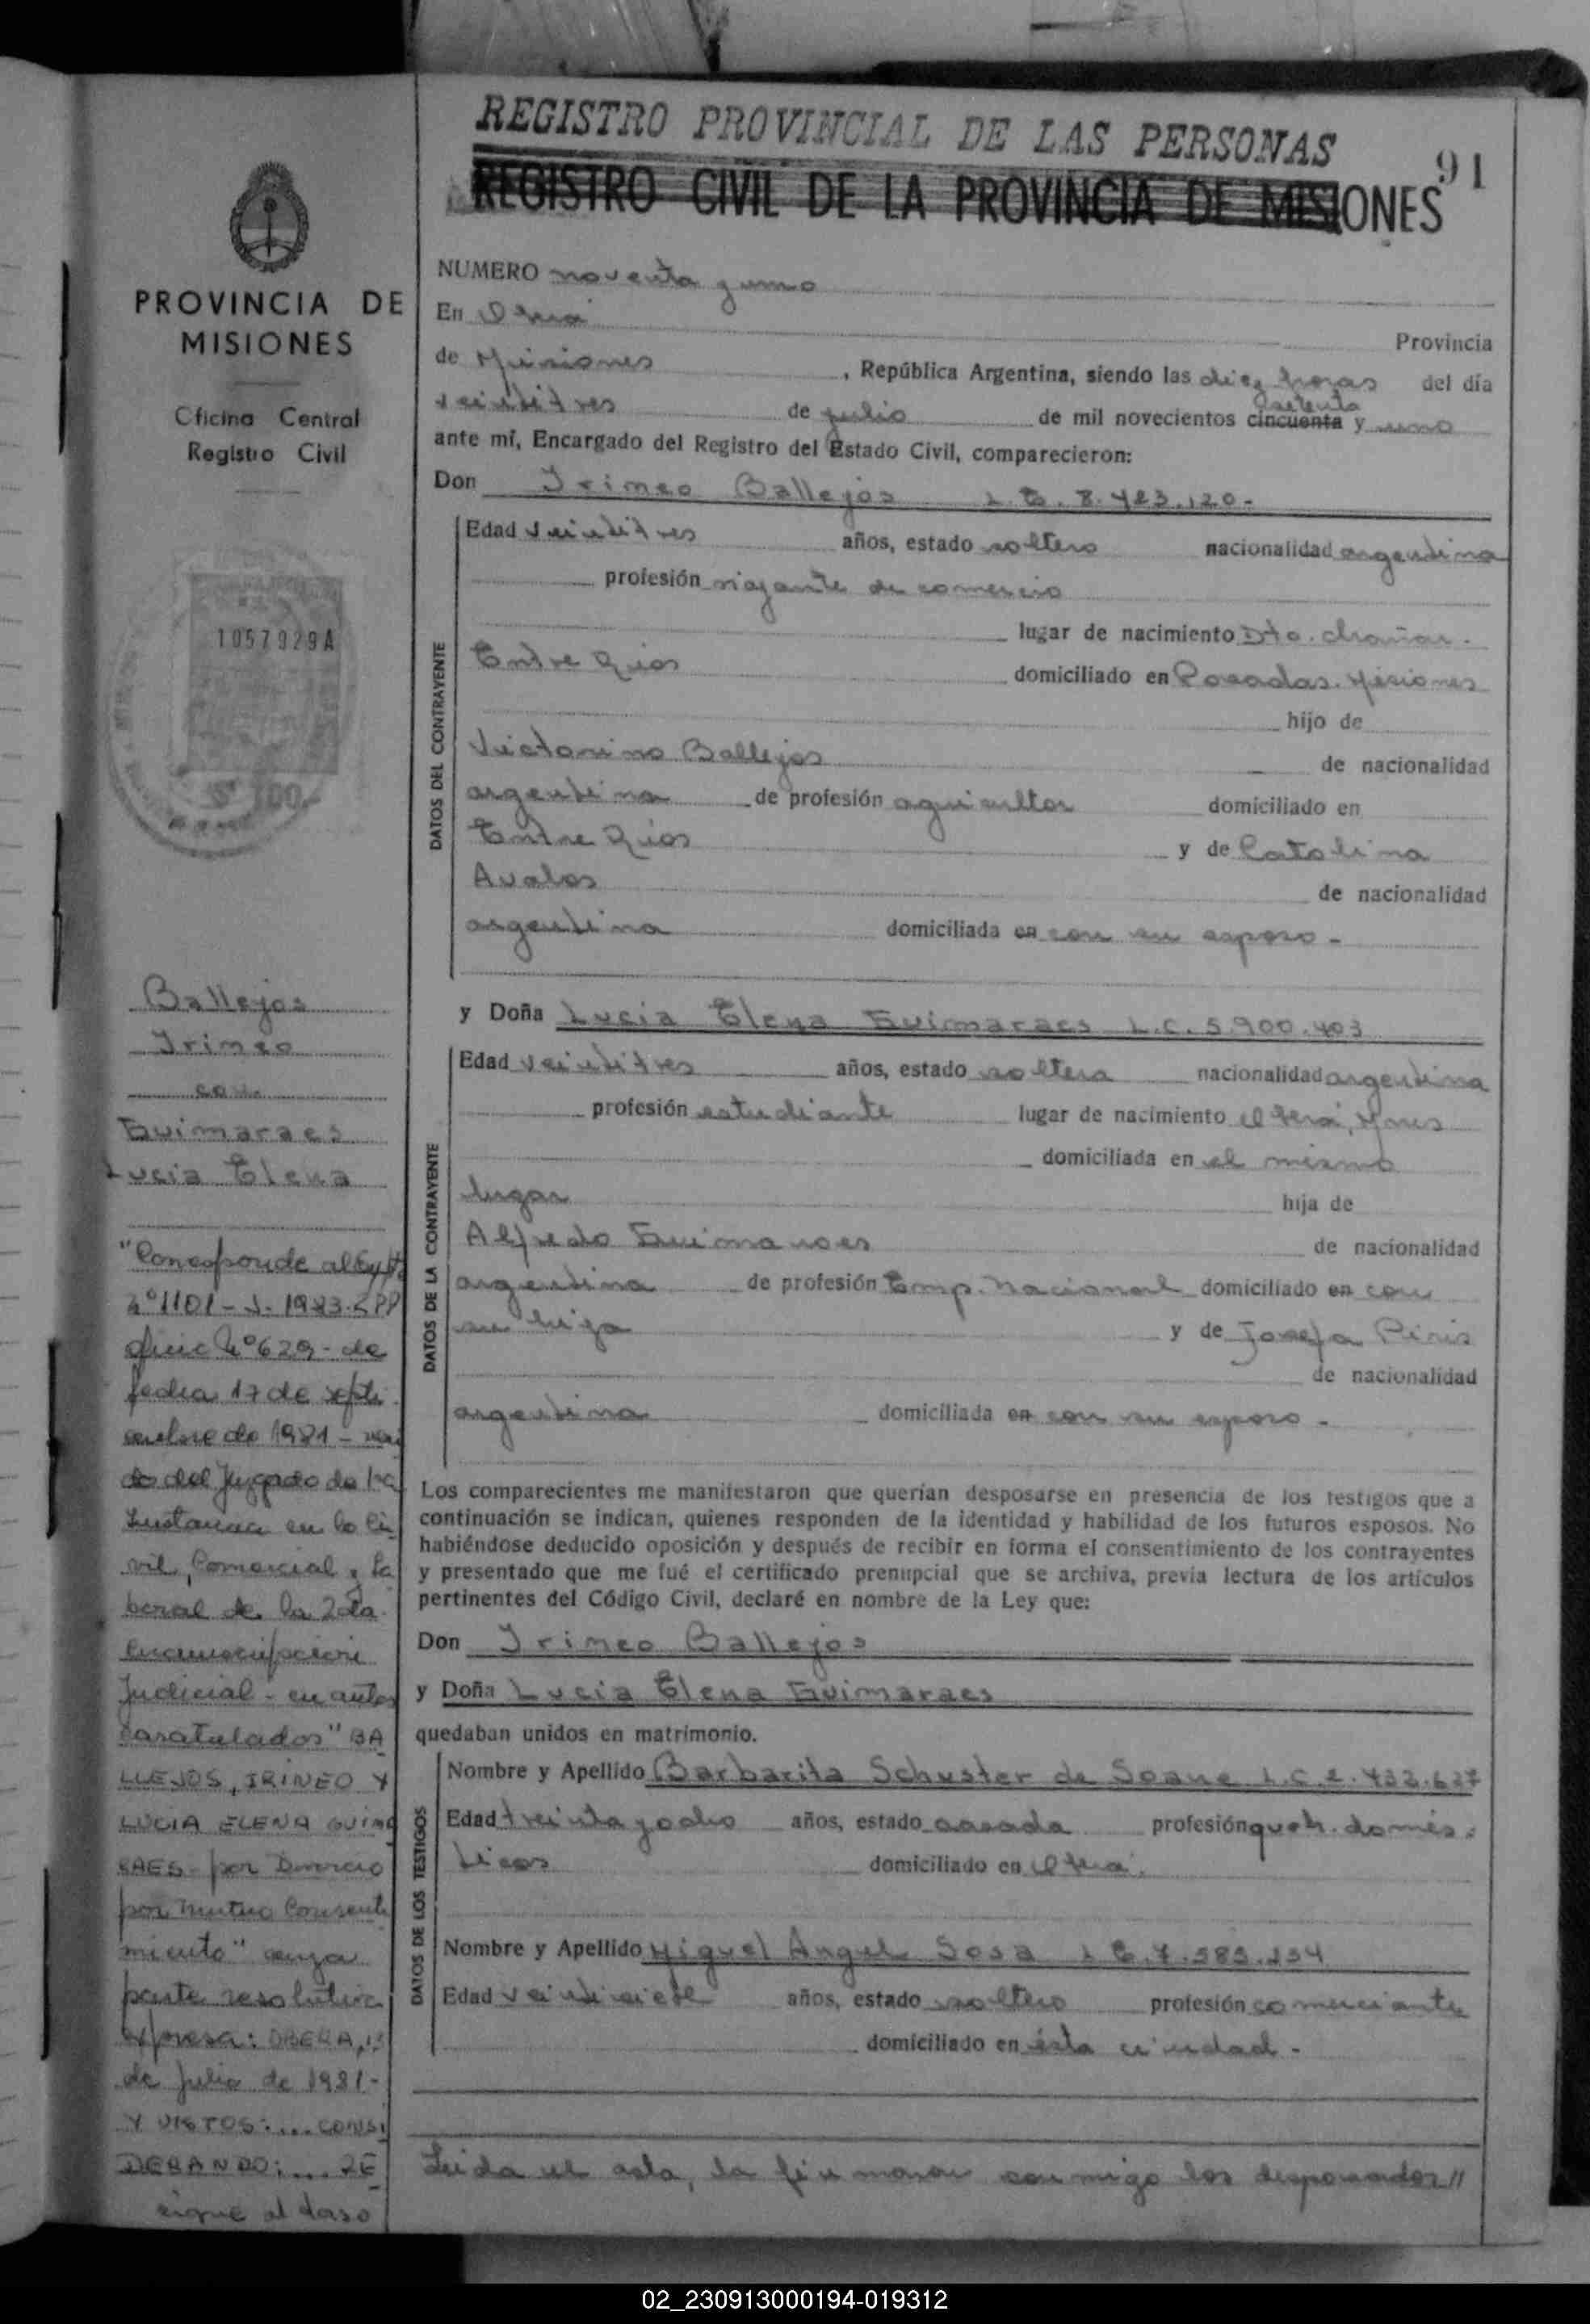 REGISTRO PROVINCIAL DE LAS PERSONAS
REGISTRO CIVIL DE LA PROVINCIA DE MISIONES
91
PROVINCIA DE
MISIONES
Oficina Central
Registro Civil
1057929A
$ 100.-
Ballejos
Irineo
con
Guimaraes
Lucia Elena
"Corresponde al Expte
Nº 1101 - J - 1983.
oficio Nº 629 - de
fecha 17 de septi
embre de 1981 -
do del Juzgado de 1ra
Instancia en lo Ci
vil, Comercial y La
boral de la 2da
Circunscripción
Judicial - en autos
caratulados "BA
LLEJOS, IRINEO Y
LUCIA ELENA GUIMA
RAES - por Divorcio
por Mutuo Consenti
miento" cuya
parte resolutiva
expresa: OBERA, 13
de Julio de 1981 -
Y VISTOS: ... CONSI
DERANDO: ... RE
sigue al dorso
NUMERO noventa y uno
En Oberá Provincia
de Misiones, República Argentina, siendo las diez horas del día
veintitres de julio de mil novecientos cincuenta setenta y uno
ante mí, Encargado del Registro del Estado Civil, comparecieron:
Don Irineo Ballejos L.E. 8.423.120-
DATOS DEL CONTRAYENTE
Edad veintitres años, estado soltero nacionalidad argentina
profesión viajante de comercio
lugar de nacimiento Dto. chañar.
Entre Rios domiciliado en Posadas. Misiones
hijo de
Victorino Ballejos de nacionalidad
argentina de profesión agricultor domiciliado en
Entre Rios y de Catalina
Avalos de nacionalidad
argentina domiciliada en con su esposo -
y Doña Lucia Elena Guimaraes L.C. 5.900.403
DATOS DE LA CONTRAYENTE
Edad veintitres años, estado soltera nacionalidad argentina
profesión estudiante lugar de nacimiento Oberá, Mnes
domiciliada en el mismo
lugar hija de
Alfredo Guimaraes de nacionalidad
argentina de profesión Emp. Nacional domiciliado en con
su hija y de Josefa Piris
de nacionalidad
argentina domiciliada en con su esposo -
Los comparecientes me manifestaron que querían desposarse en presencia de los testigos que a
continuación se indican, quienes responden de la identidad y habilidad de los futuros esposos. No
habiéndose deducido oposición y después de recibir en forma el consentimiento de los contrayentes
y presentado que me fué el certificado prenupcial que se archiva, previa lectura de los artículos
pertinentes del Código Civil, declaré en nombre de la Ley que:
Don Irineo Ballejos
y Doña Lucia Elena Guimaraes
quedaban unidos en matrimonio.
DATOS DE LOS TESTIGOS
Nombre y Apellido Barbarita Schuster de Seane L.C. 2.432.637
Edad treinta y ocho años, estado casada profesión queh. domés-
ticos domiciliado en Oberá.
Nombre y Apellido Miguel Angel Sosa L.E. 7.585.254
Edad veintisiete años, estado soltero profesión comerciante
domiciliado en ésta ciudad -
Leida el acta, la firmaron conmigo los desposados//
02_230913000194-019312